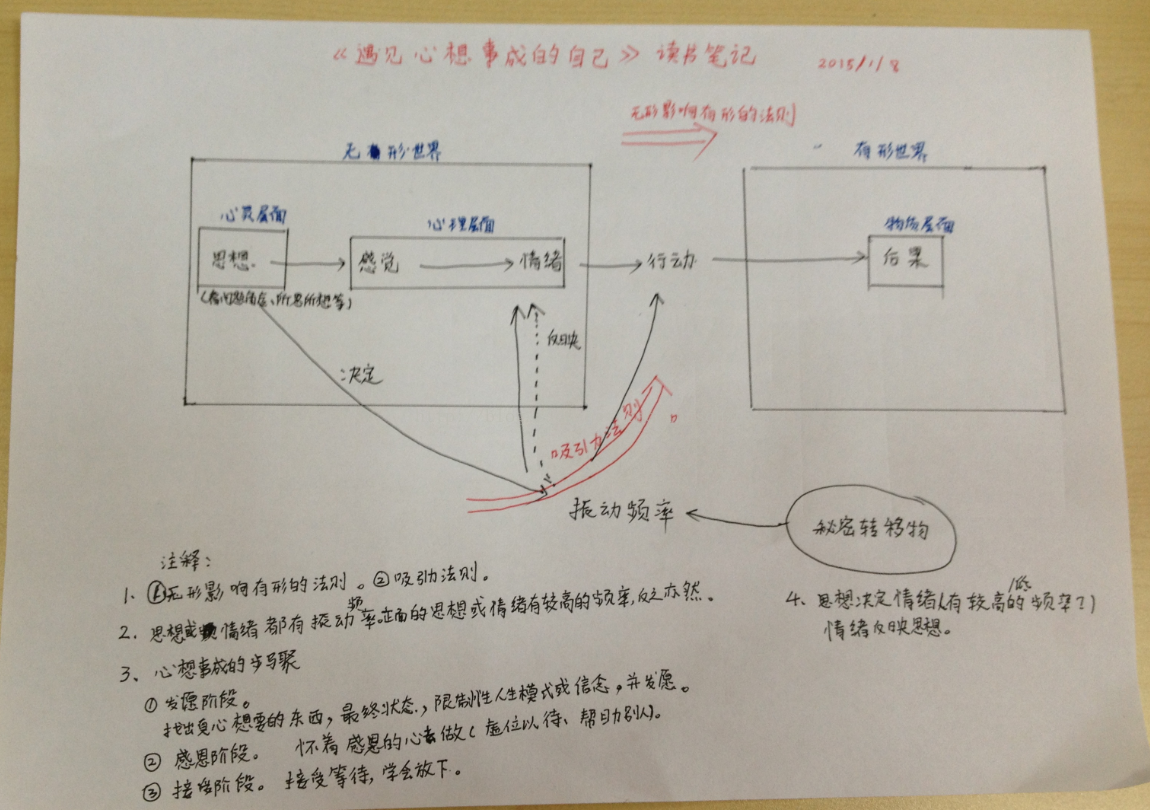 《遇见心想事成的自己》读书笔记 2015/1/8
无形影响有形的法则
无形世界
有形世界
心灵层面
心理层面
物质层面
思想
感觉
情绪
行动
后果
(看问题角度、所思所想等)
反映
决定
吸引力法则
振动频率
秘密转移物
注释:
1、①无形影响有形的法则。②吸引力法则。
2、思想或情绪都有振动频率。正面的思想或情绪有较高的频率,反之亦然。
3、心想事成的步骤
①发愿阶段。
找出真心想要的东西,最终状态,限制性人生模式或信念,并发愿。
②感恩阶段。 怀着感恩的心去做(虚位以待、帮助别人)。
③接受阶段。接受等待,学会放下。
4、思想决定情绪(有较高/低的频率?)
情绪反映思想。